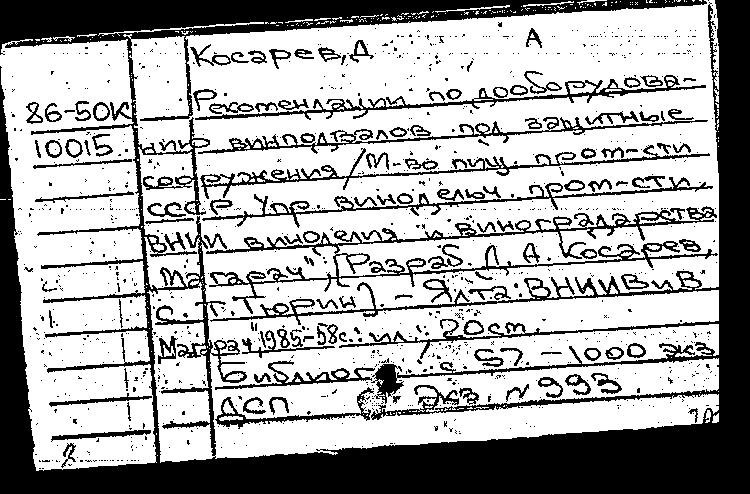 Косарев, Д А
86-50К Рекомендации по дооборудова-
10015 нию винподвалов под защитные
сооружения / М-во пищ. пром-сти
СССР, Упр. винодельч. пром-сти,
ВНИИ виноделия и виноградарства
"Магарач"; [Разраб. Д. А. Косарев,
С. Т. Тюрин]. - Ялта: ВНИИВиВ
Магарач", 1985.-58с.: ил.; 20см.
Библиог с 57. - 1000 экз
ДСП. Экз. № 993.